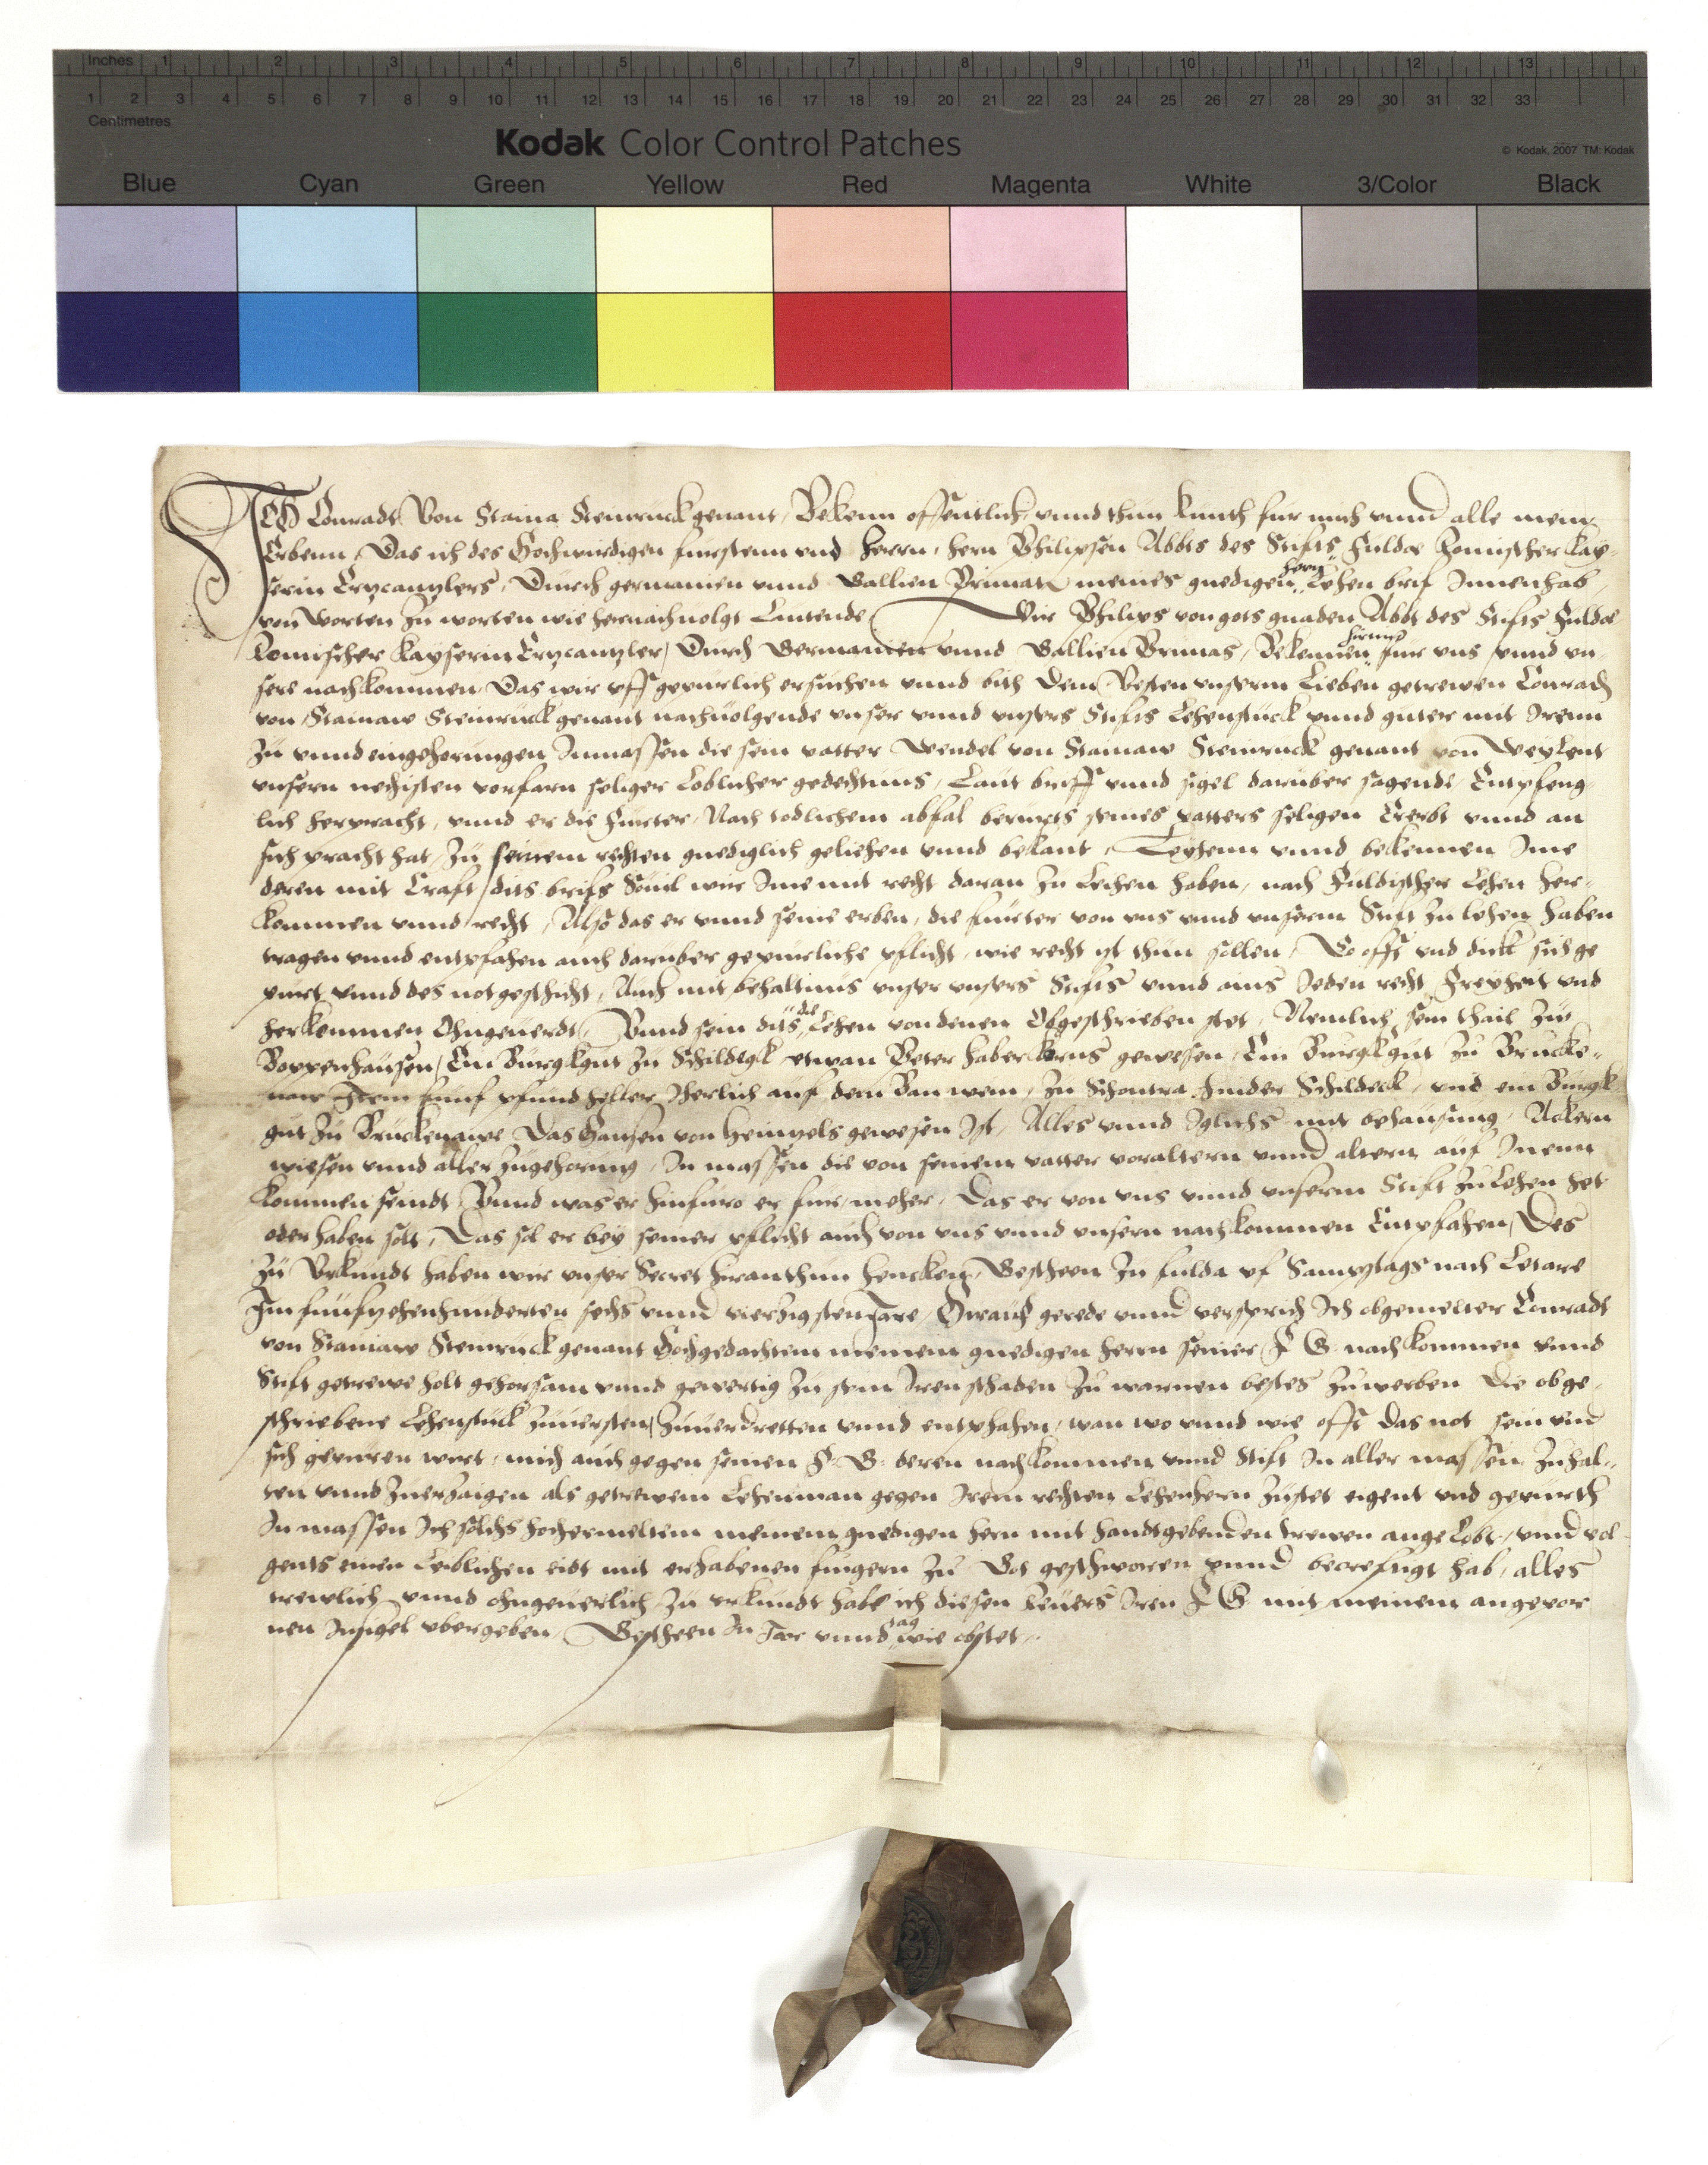 Inches 1 2 3 4 5 6 7 8 9 10 11 12 13
1 2 3 4 5 6 7 8 9 10 11 12 13 14 15 16 17 18 19 20 21 22 23 24 25 26 27 28 29 30 31 32 33
Centimetres
Kodak Color Control Patches
© Kodak, 2007 TM: Kodak
Blue Cyan Green Yellow Red Magenta White 3/Color Black
ICH Conradt Von Staina Steinruck genant, Bekenn offentlich, vnnd thun kunth fur mich vnnd alle mein
Erbenn, Das ich des Hochwirdigen furstenn vnd herrn, hern Philipsen Abbts des Stifts Fuldæ Romischer Kay-
serin Ertzcantzlers, Durch germanien vnnd Gallien Primaten meines gnedigen hern Lehen brif Innenhab,
von Worten zu worten wie hernachuolgt Lautende Wir Philips von gots gnaden Abbt des Stifts Fuldæ
Romischer Kayserin Ertzcantzler, Durch Germanien vnnd Gallien Primas, Bekennen hirmit fur vns vnnd vn-
sere nachkommen, Das wir vff gepurlich ersuchen vnnd bith Dem Vesten vnserm Lieben getrewen Conrad
von Stainaw Steinruck genant nachuolgende vnser vnnd vnsers Stifts Lehenstuck vnnd guter mit Irenn
zu vnnd eingehorungen Inmassen die sein vatter Wendel von Stainaw Steinruck genant von Weylent
vnsern nechsten vorfarn seliger Loblicher gedechtnus, Laut briff vnnd sigel daruber sagende, Entpfeng-
lich herpracht, vnnd er die furter, Nach todlichem abfal berurts seines vatters seligen Ererbt vnnd an
sich pracht hat, zu seinem rechten gnediglich geliehen vnnd bekant, Leyhenn vnnd bekennen Ime
deren mit Craft dits brifs Souil wir Ime mit recht daran zu Leihen haben, nach Fuldischer Lehen her-
kommen vnnd recht, Also das er vnnd seine erben, die furter von vns vnnd vnserm Stift zu lehen haben
tragen vnnd entpfahen auch daruber gepurliche pflicht, wie recht ist thun sollen, So offt vnd dick sich ge
purt vnnd des not geschicht, Auch mit behaltnus vnser vnsers Stifts vnnd ains Jeden recht Freyheit vnd
herkommen Ohngeuerdt, Vnnd sein dits die Lehen von denen Obgeschrieben stet, Nemlich sein thail zu
Poppenhausen, Ein Burgkgut zu Schildegk etwan Peter haberkorns gewesen, Ein Burgkgut zu Brucke-
naw Item funf pfund heller Jherlich auf dem Ban wein, zu Schontra hinder Schildeck, vnd ein Burgk
gut zu Bruckenawe Das Hansen von Heintzels gewesen Ist, Alles vnnd Iglichs mit behausung, Ackern
wiesen vnnd aller zugehorung, In massen die von seinem vatter voraltern vnnd altern auf Inenn
kommen seindt, Vnnd was er hinfuro er fur, meher, Das er von vns vnnd vnserm Stift zu Lehen het
oder haben solt, Das sol er bey seiner pflicht auch von vns vnnd vnsern nachkommen Entpfahen, Des
zu Vrkundt haben wir vnser Secret hiran thun hencken, Gescheen zu fulda vf Sampstags nach Letare
Im funfzehenhunderten sechs vnnd vierzigsten Jare, Hirauf gerede vnnd versprich Ich obgemelter Conradt
von Stainaw Steinruck genant Hochgedachtem meinem gnedigen herrn seiner F G nachkommen vnnd
Stift getrewe holt gehorsam vnnd gewertig zu sein Iren schaden zu warnen bestes zuwerben Die obge-
schriebene Lehenstuck zuuersten, zuuerdretten vnnd entpfahen, wan wo vnnd wie offt das not sein vnd
sich gepuren wirt, mich auch gegen seinen F. G. deren nachkommen vnnd Stift In aller massen zu hal-
ten vnnd zuerzaigen als getrewem Lehenman gegen Irem rechten Lehenhern zustet eigent vnd gepurth
In massen Ich solchs hochermeltem meinem gnedigen hern mit handtgebenden trewen angelobt, vnnd vol-
gents einen Leiblichen eidt mit erhabenen fingern zu Got geschworen vnnd hab, alles
trewlich vnnd ohngeuerlich zu vrkundt habe ich diesen Reuers Iren F G mit meinem angepor
nen Innsigel vbergeben, Gescheen In Jar vnnd tag wie obstet.